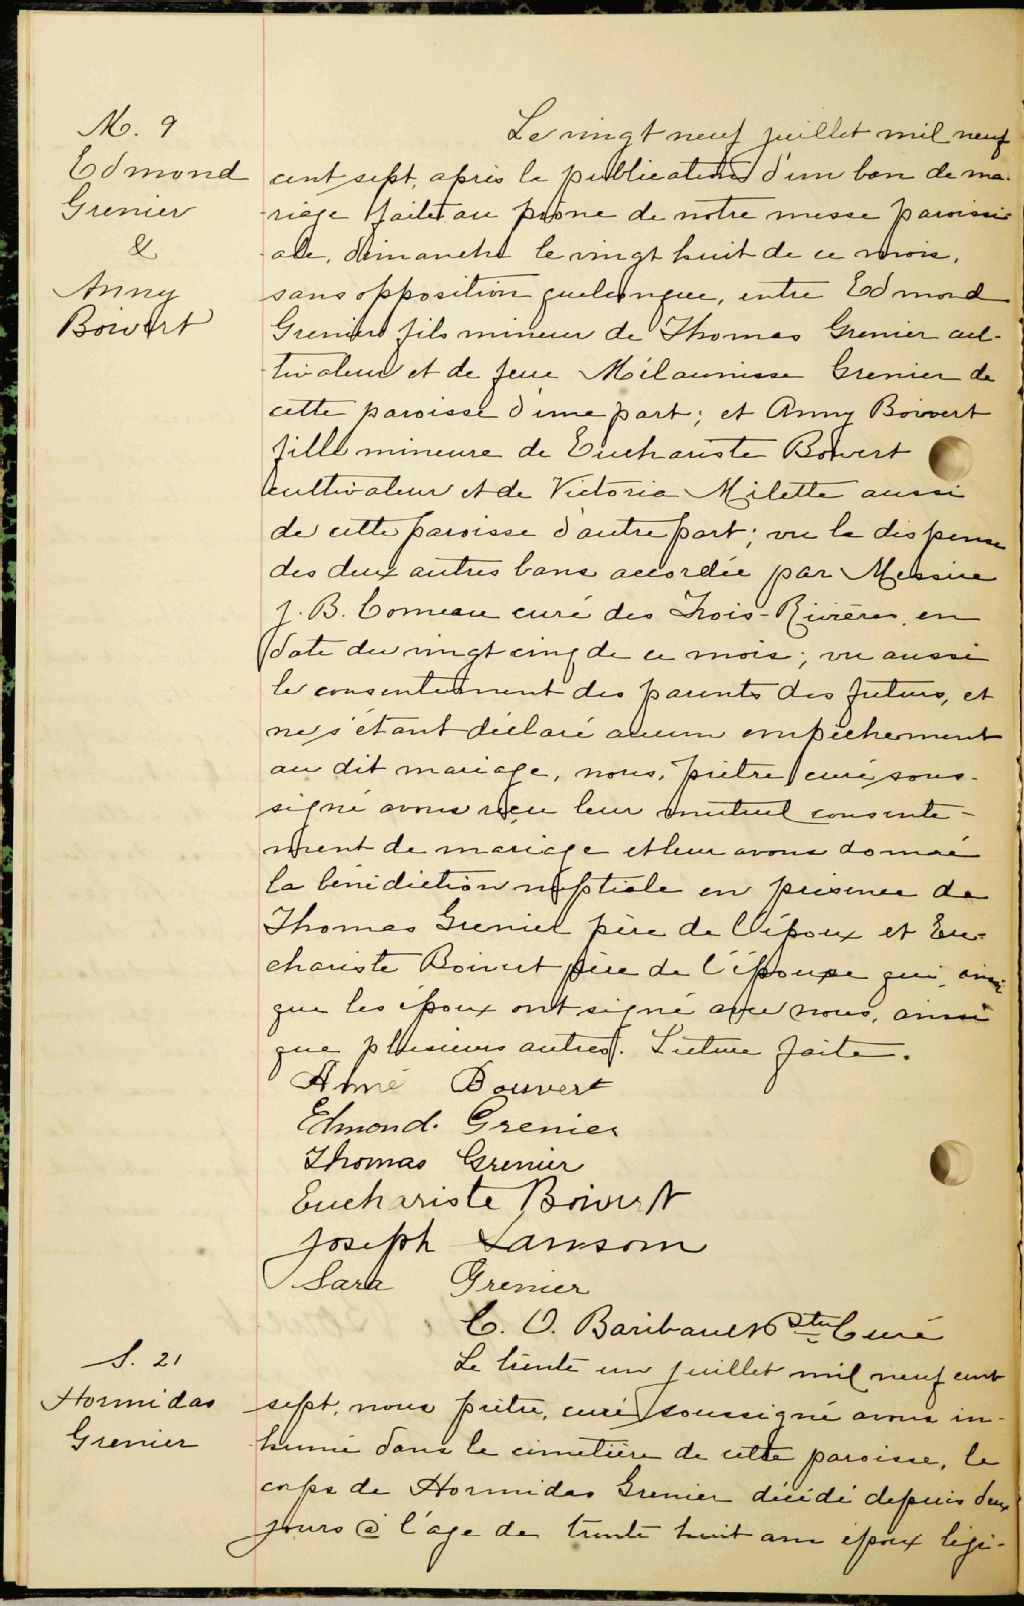 M. 9
Edmond
Grenier
&
Anny
Boivert
Le vingt neuf juillet mil neuf
cent sept, après la publication d'un ban de ma-
riage faite au prône de notre messe paroissi-
ale, dimanche le vingt huit de ce mois,
sans opposition quelconque, entre Edmond
Grenier fils mineur de Thomas Grenier cul-
tivateur et de feue Mélaunisse Grenier de
cette paroisse d'une part; et Anny Boivert
fille mineure de Euchariste Boivert
cultivateur et de Victoria Milette aussi
de cette paroisse d'autre part; vu la dispense
des deux autres bans accordée par Messire
J. B. Comeau curé des Trois-Rivières, en
date du vingt cinq de ce mois; vu aussi
le consentement des parents des futurs, et
ne s'étant déclaré aucun empêchement
au dit mariage, nous, prêtre, curé sous-
signé avons reçu leur mutuel consente-
ment de mariage et leur avons donné
la bénédiction nuptiale en présence de
Thomas Grenier père de l'époux et Eu-
chariste Boivert père de l'épouse qui, ainsi
que les époux ont signé avec nous, ainsi
que plusieurs autres. Lecture faite.
Boisvert
Edmond. Grenier
Thomas Grenier
Euchariste Boivert
Joseph Lamsom
Sara Grenier
C. O. Baribault Ptre Curé
S. 21
Hormidas
Grenier
Le trente un juillet mil neuf cent
sept, nous prêtre, curé soussigné avons in-
humé dans le cimetière de cette paroisse, le
corps de Hormidas Grenier décédé depuis deux
jours à l'age de trente huit ans époux légi-